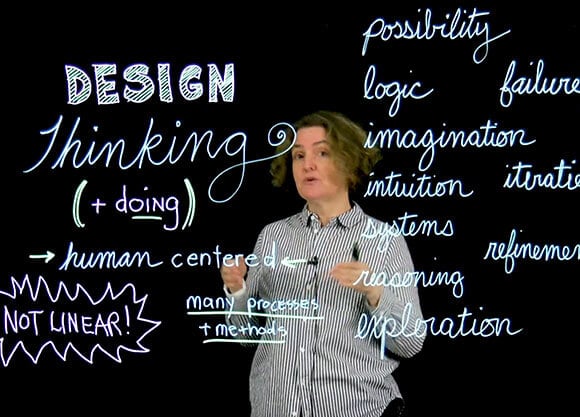 DESIGN
Thinking
(+ doing)
→ human centered ←
NOT LINEAR!
many processes
+ methods
possibility
logic failure
imagination
intuition iteratio
systems
refinemen
reasoning
exploration